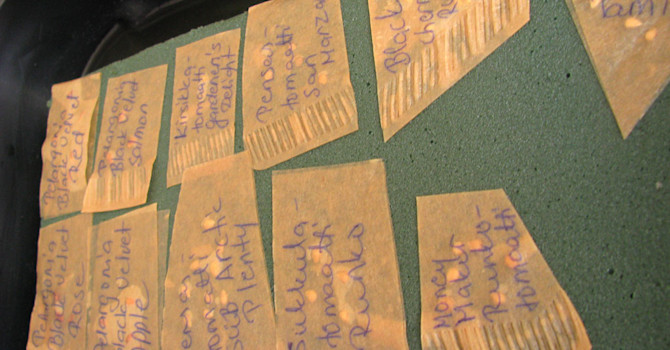 Pelargonia
Black Velvet
Red
Pelargonia
Black Velvet
Salmon
Kirsikka-
tomaatti
Gardener's
Delight
Pensas-
tomaatti
San
Marza
Black
cher
Pelargonia
Black Velvet
Rose
Pelargonia
Black Velvet
Apple
ensas
omaatti
Sub Arctic
Plenty
Sukkula-
tomaatti
Rusko
Money
Maker
Runko-
tomaatti